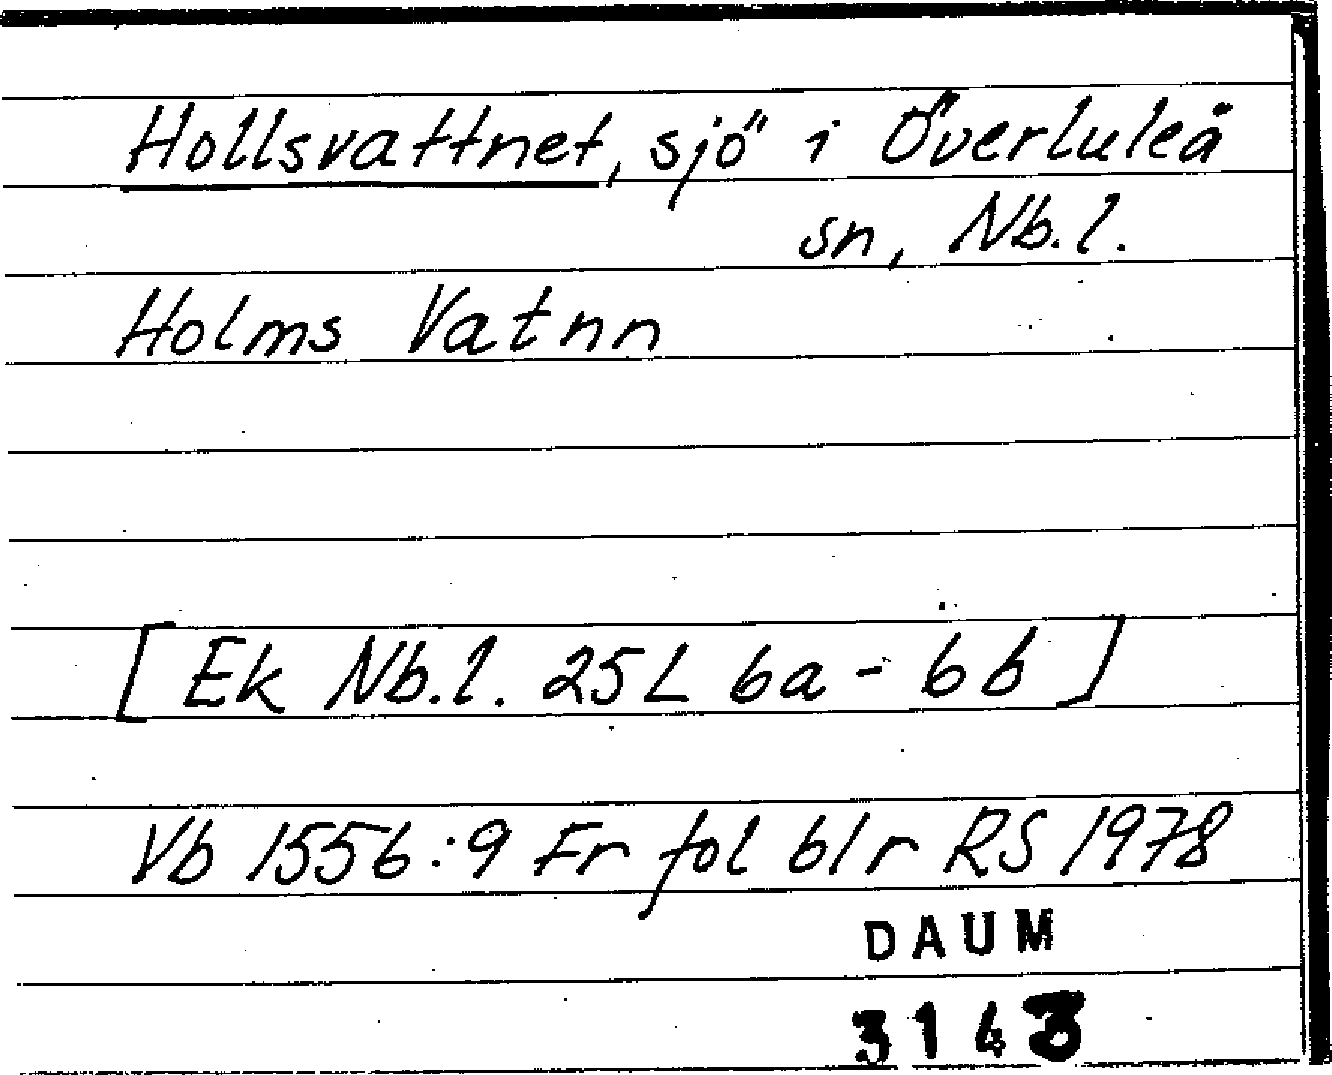 Hollsvattnet, sjö i Överluleå
sn, Nb.l.
Holms Vatnn
[Ek Nb.l. 25L 6a - 6b]
Vb 1556:9 Fr fol 61r RS 1978
DAUM
3143